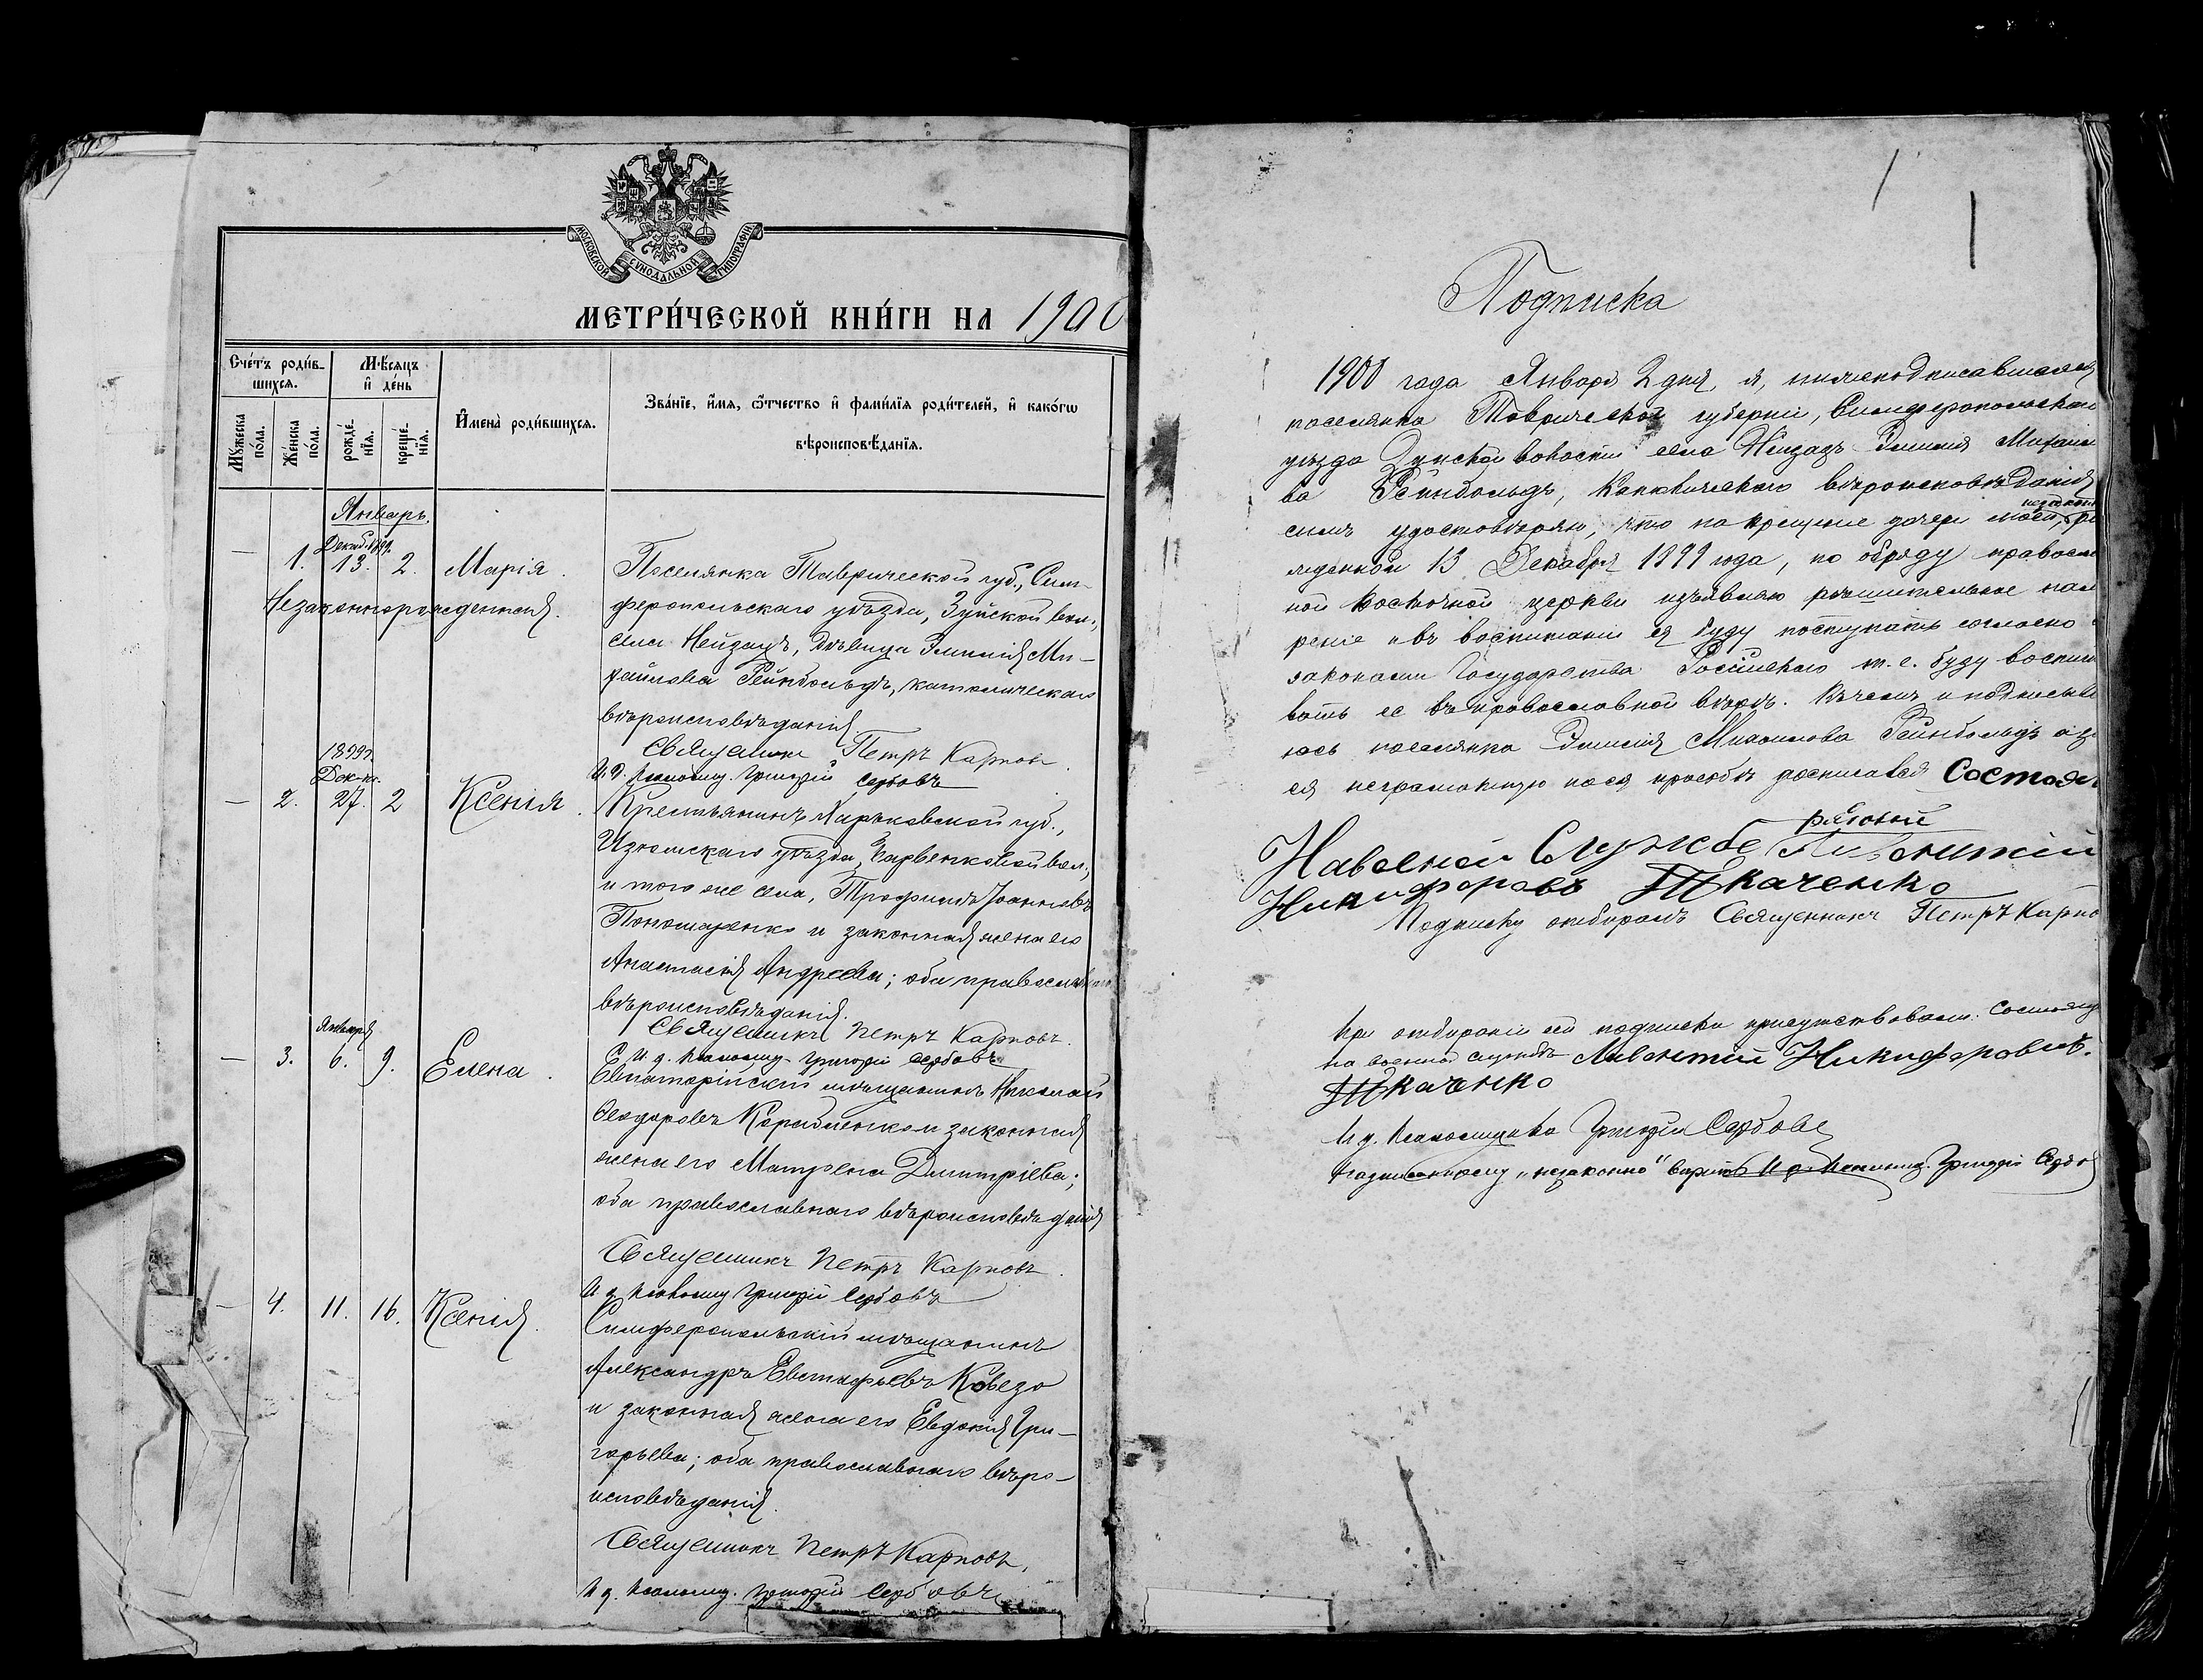 МОСКОВСКОЙ СУНОДАЛЬНОЙ ТИПОГРАФІИ
МЕТРИ́ЧЕСКОЙ КНИ́ГИ НА 1900
Сче́тъ роди́в-
шихся.
Мѣ́сяцъ
и҆ де́нь
Мꙋжеска по́ла.
Же́нска по́ла.
рожде́нїя.
креще́нїя.
И҆мена̀ роди́вшихся.
Зва́нїе, и҆́мя, ѻ҆́тчество и҆ фами́лїя роди́телей, и҆ како́гѡ
вѣроисповѣ́данїя.
Январь.
Декаб. 1899.
— 1. 13. 2. Марія.
Незаконнорожденная.
Поселянка Таврической губ., Сим-
феропольскаго уѣзда, Зуйской вол.,
села Нейзацъ, дѣвица Эмилія Ми-
хайлова Рейнбольдъ, католическаго
вѣроисповѣданія
Священникъ Петръ Карповъ.
И. д. псаломщ. Григорій Сербовъ
1899.
Дек-ря.
— 2. 27. 2 Ксенія.
Крестьянинъ Харьковской губ.,
Изюмскаго уѣзда, Барвенковой вол.,
и того же села, Трофимъ Іоанновъ
Пономаренко и законная жена его
Анастасія Андреева; оба православнаго
вѣроисповѣданія.
Священникъ Петръ Карповъ.
И. д. псаломщ. Григорій Сербовъ
Января
— 3. 6. 9. Елена.
Евпаторійскій мѣщанинъ Николай
Ѳеодоровъ и законная
жена его Матрена Димитріева;
оба православнаго вѣроисповѣданія
Священникъ Петръ Карповъ.
И д. псаломщ Григорій Сербовъ
— 4. 11. 16. Ксенія.
Симферопольскій мѣщанинъ
Александръ Евстафьевъ
и законная жена его Евдокія Гри-
горьева; оба православнаго вѣро-
исповѣданія.
Священникъ Петръ Карповъ,
И д. псаломщ. Григорій Сербовъ
Подписка
1900 года Января 2 дня, я, нижеподписавшаяся
поселянка Таврической губерніи, Симферопольскаго
уѣзда Зуйской волости села Нейзацъ Эмилія Михайло
ва Рейнбольдъ, католическаго вѣроисповѣданія
симъ удостовѣряю, что на крещеніе дочери моей, незаконно ро
жденной 13 Декабря 1899 года, по обряду правосла
ной восточной церкви изъявляю рѣшительное намѣ
реніе и въ воспитаніи ея буду поступать согласно съ
законами Государства Россійскаго т. е. буду воспиты
вать ее въ православной вѣрѣ. Въ чемъ и подписыва
юсь поселянка Эмилія Михайлова Рейнбольдъ а за
ея неграмотную по ея просьбѣ росписался Состоящ
рядовой
На военой Службе
Никифоровъ Ткаченко
Подписку отбиралъ Священникъ Петръ Карпо
При отбираніи сей подписки присутствовали: Состоящ
на военной службѣ Никифоровъ.
Ткаченко
И д. псаломщика Григорій Сербовъ
Надписанному „незаконно" вѣрить И. д. Псаломщ. Григорій Сербов